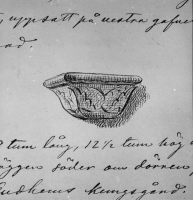 , uppsatt på vestra gafve
ad.
tum lång, 12½ tum hög
äggen söder om dörren,
Kungsgård.